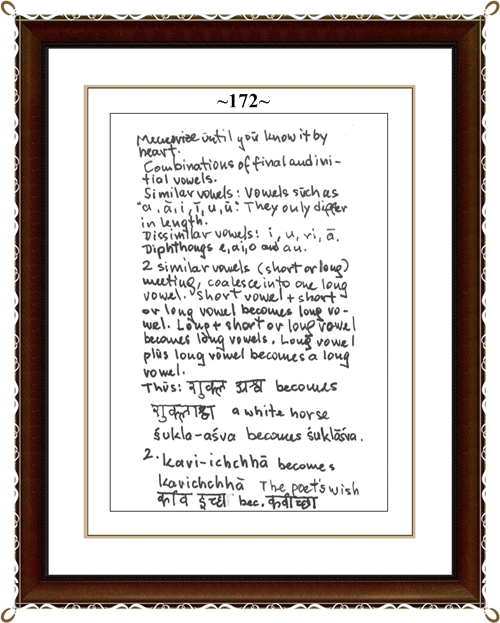 ~172~
Memorize until you know it by
heart.
Combinations of final and ini-
tial vowels.
Similar vowels: Vowels such as
"a, ā, i, ī, u, ū." They only differ
in length.
Dissimilar vowels: i, u, ri, ā.
Diphthongs e, ai, o and au.
2 similar vowels (short or long)
meeting, coalesce into one long
vowel. Short vowel + short
or long vowel becomes long vo-
wel. Long + short or long vowel
becomes long vowels. Long vowel
plus long vowel becomes a long
vowel.
Thus: शुक्ल अश्व becomes
शुक्लाश्व a white horse
śukla-aśva becomes śuklāśva.
2. kavi-ichchhā becomes
kavichchhā The poet's wish
कवि इच्छा bec. कवीच्छा